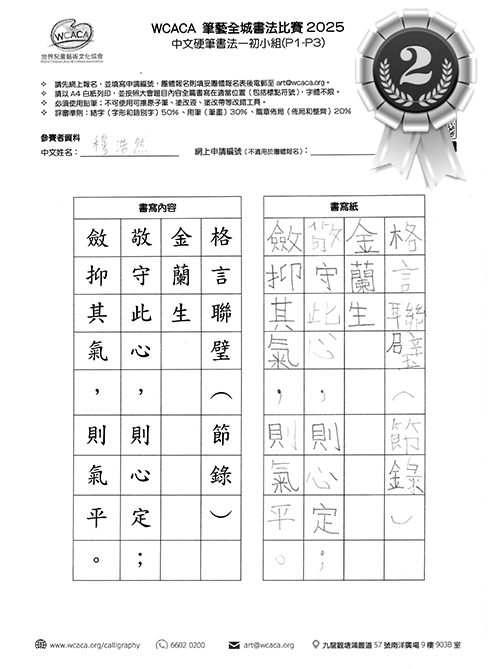 WCACA
世界兒童藝術文化協會
WCACA 筆藝全城書法比賽 2025
中文硬筆書法—初小組(P1-P3)
2
請先網上報名，並填寫申請編號，團體報名則填妥團體報名表後電郵至 art@wcaca.org。
請以 A4 白紙列印，並按照大會題目內容全篇書寫在適當位置（包括標點符號），字體不限。
必須使用鉛筆；不可使用可擦原子筆、塗改液、塗改帶等改錯工具。
評審準則：結字（字形和錯別字）50%、用筆（筆畫）30%、篇章佈局（佈局和整齊）20%
參賽者資料
中文姓名：穆浩然
網上申請編號（不適用於團體報名）：
書寫內容
格言聯璧（節錄）
金蘭生
敬守此心，則心定；
斂抑其氣，則氣平。
書寫紙
格言聯璧（節錄）
金蘭生
敬守此心，則心定；
斂抑其氣，則氣平。
www.wcaca.org/calligraphy
6602 0200
art@wcaca.org
九龍觀塘鴻圖道 57 號南洋廣場 9 樓 903B 室